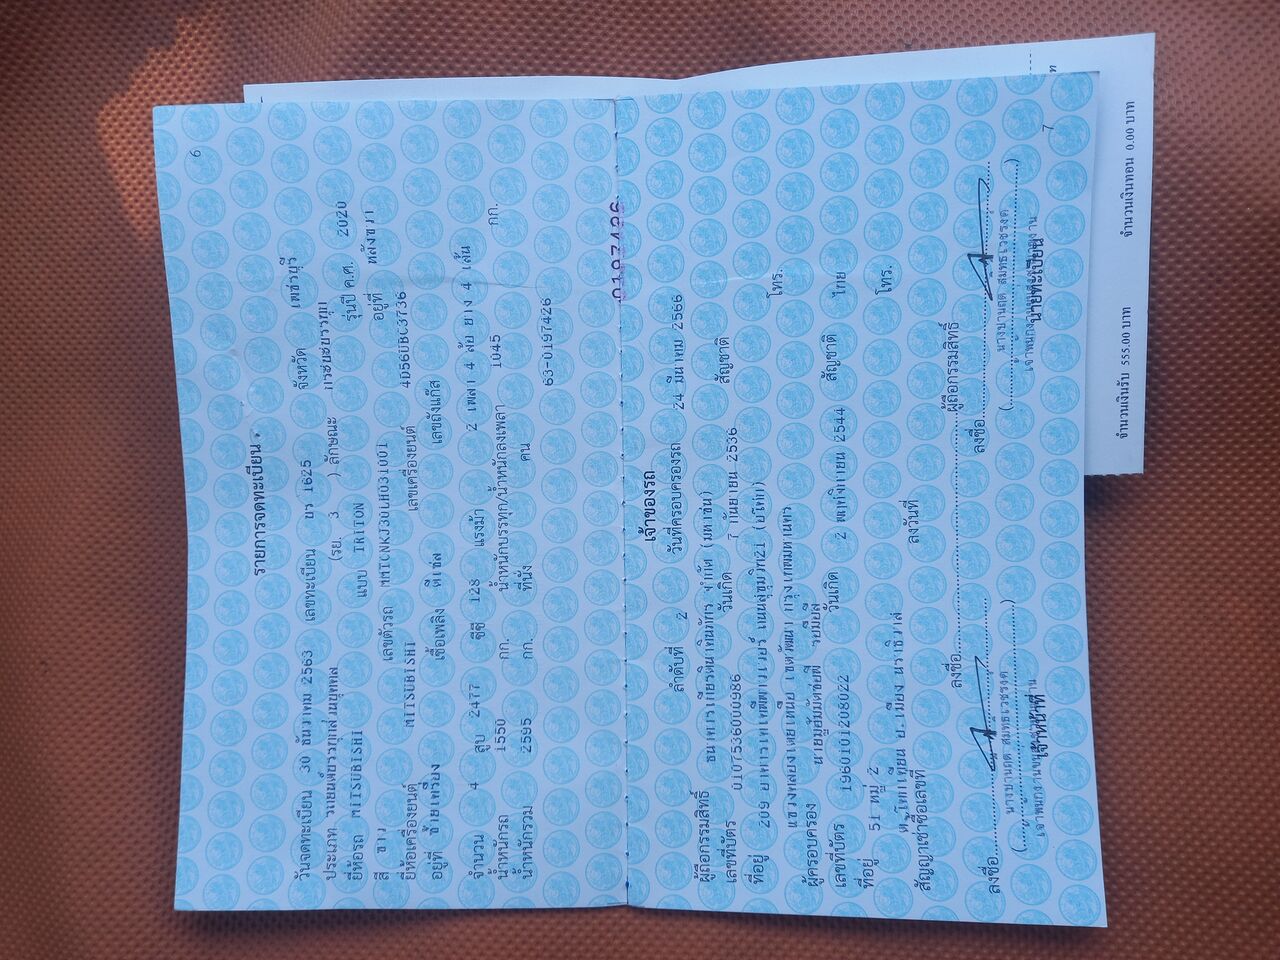 6
รายการจดทะเบียน
วันจดทะเบียน 30 ธันวาคม 2563 เลขทะเบียน บร 1625 จังหวัด เพชรบุรี
ประเภท รถยนต์บรรทุกส่วนบุคคล (รย. 3 ) ลักษณะ กระบะบรรทุก
ยี่ห้อรถ MITSUBISHI แบบ TRITON รุ่นปี ค.ศ. 2020
สี ขาว เลขตัวรถ MMTCNKJ30LH031001 อยู่ที่ หลังขวา
ยี่ห้อเครื่องยนต์ MITSUBISHI เลขเครื่องยนต์ 4D56UBC3736
อยู่ที่ ซ้ายเครื่อง เชื้อเพลิง ดีเซล เลขถังแก๊ส
จำนวน 4 สูบ 2477 ซีซี 128 แรงม้า 2 เพลา 4 ล้อ ยาง 4 เส้น
น้ำหนักรถ 1550 กก. น้ำหนักบรรทุก/น้ำหนักลงเพลา 1045 กก.
น้ำหนักรวม 2595 กก. ที่นั่ง คน
63-0197426
0197426
เจ้าของรถ
ลำดับที่ 2 วันที่ครอบครองรถ 24 มีนาคม 2566
ผู้ถือกรรมสิทธิ์ ธนาคารเกียรตินาคินภัทร จำกัด (มหาชน)
เลขที่บัตร 0107536000986 วันเกิด 7 กันยายน 2536 สัญชาติ
ที่อยู่ 209 อาคารเคเคพีทาวเวอร์ ถนนสุขุมวิท21 (อโศก)
แขวงคลองเตยเหนือ เขตวัฒนา กรุงเทพมหานคร โทร.
ผู้ครอบครอง
เลขที่บัตร 1960101208022 วันเกิด 2 พฤศจิกายน 2544 สัญชาติ ไทย
ที่อยู่ 51 หมู่ 2
ต.โคกเคียน อ.เมือง นราธิวาส โทร.
สัญญาเช่าซื้อเลขที่ ลงวันที่
ลงชื่อ ผู้ถือกรรมสิทธิ์
ลงชื่อ ลงชื่อ
เจ้าหน้าที่ นายทะเบียน
7
จำนวนเงินรับ 555.00 บาท จำนวนเงินทอน 0.00 บาท